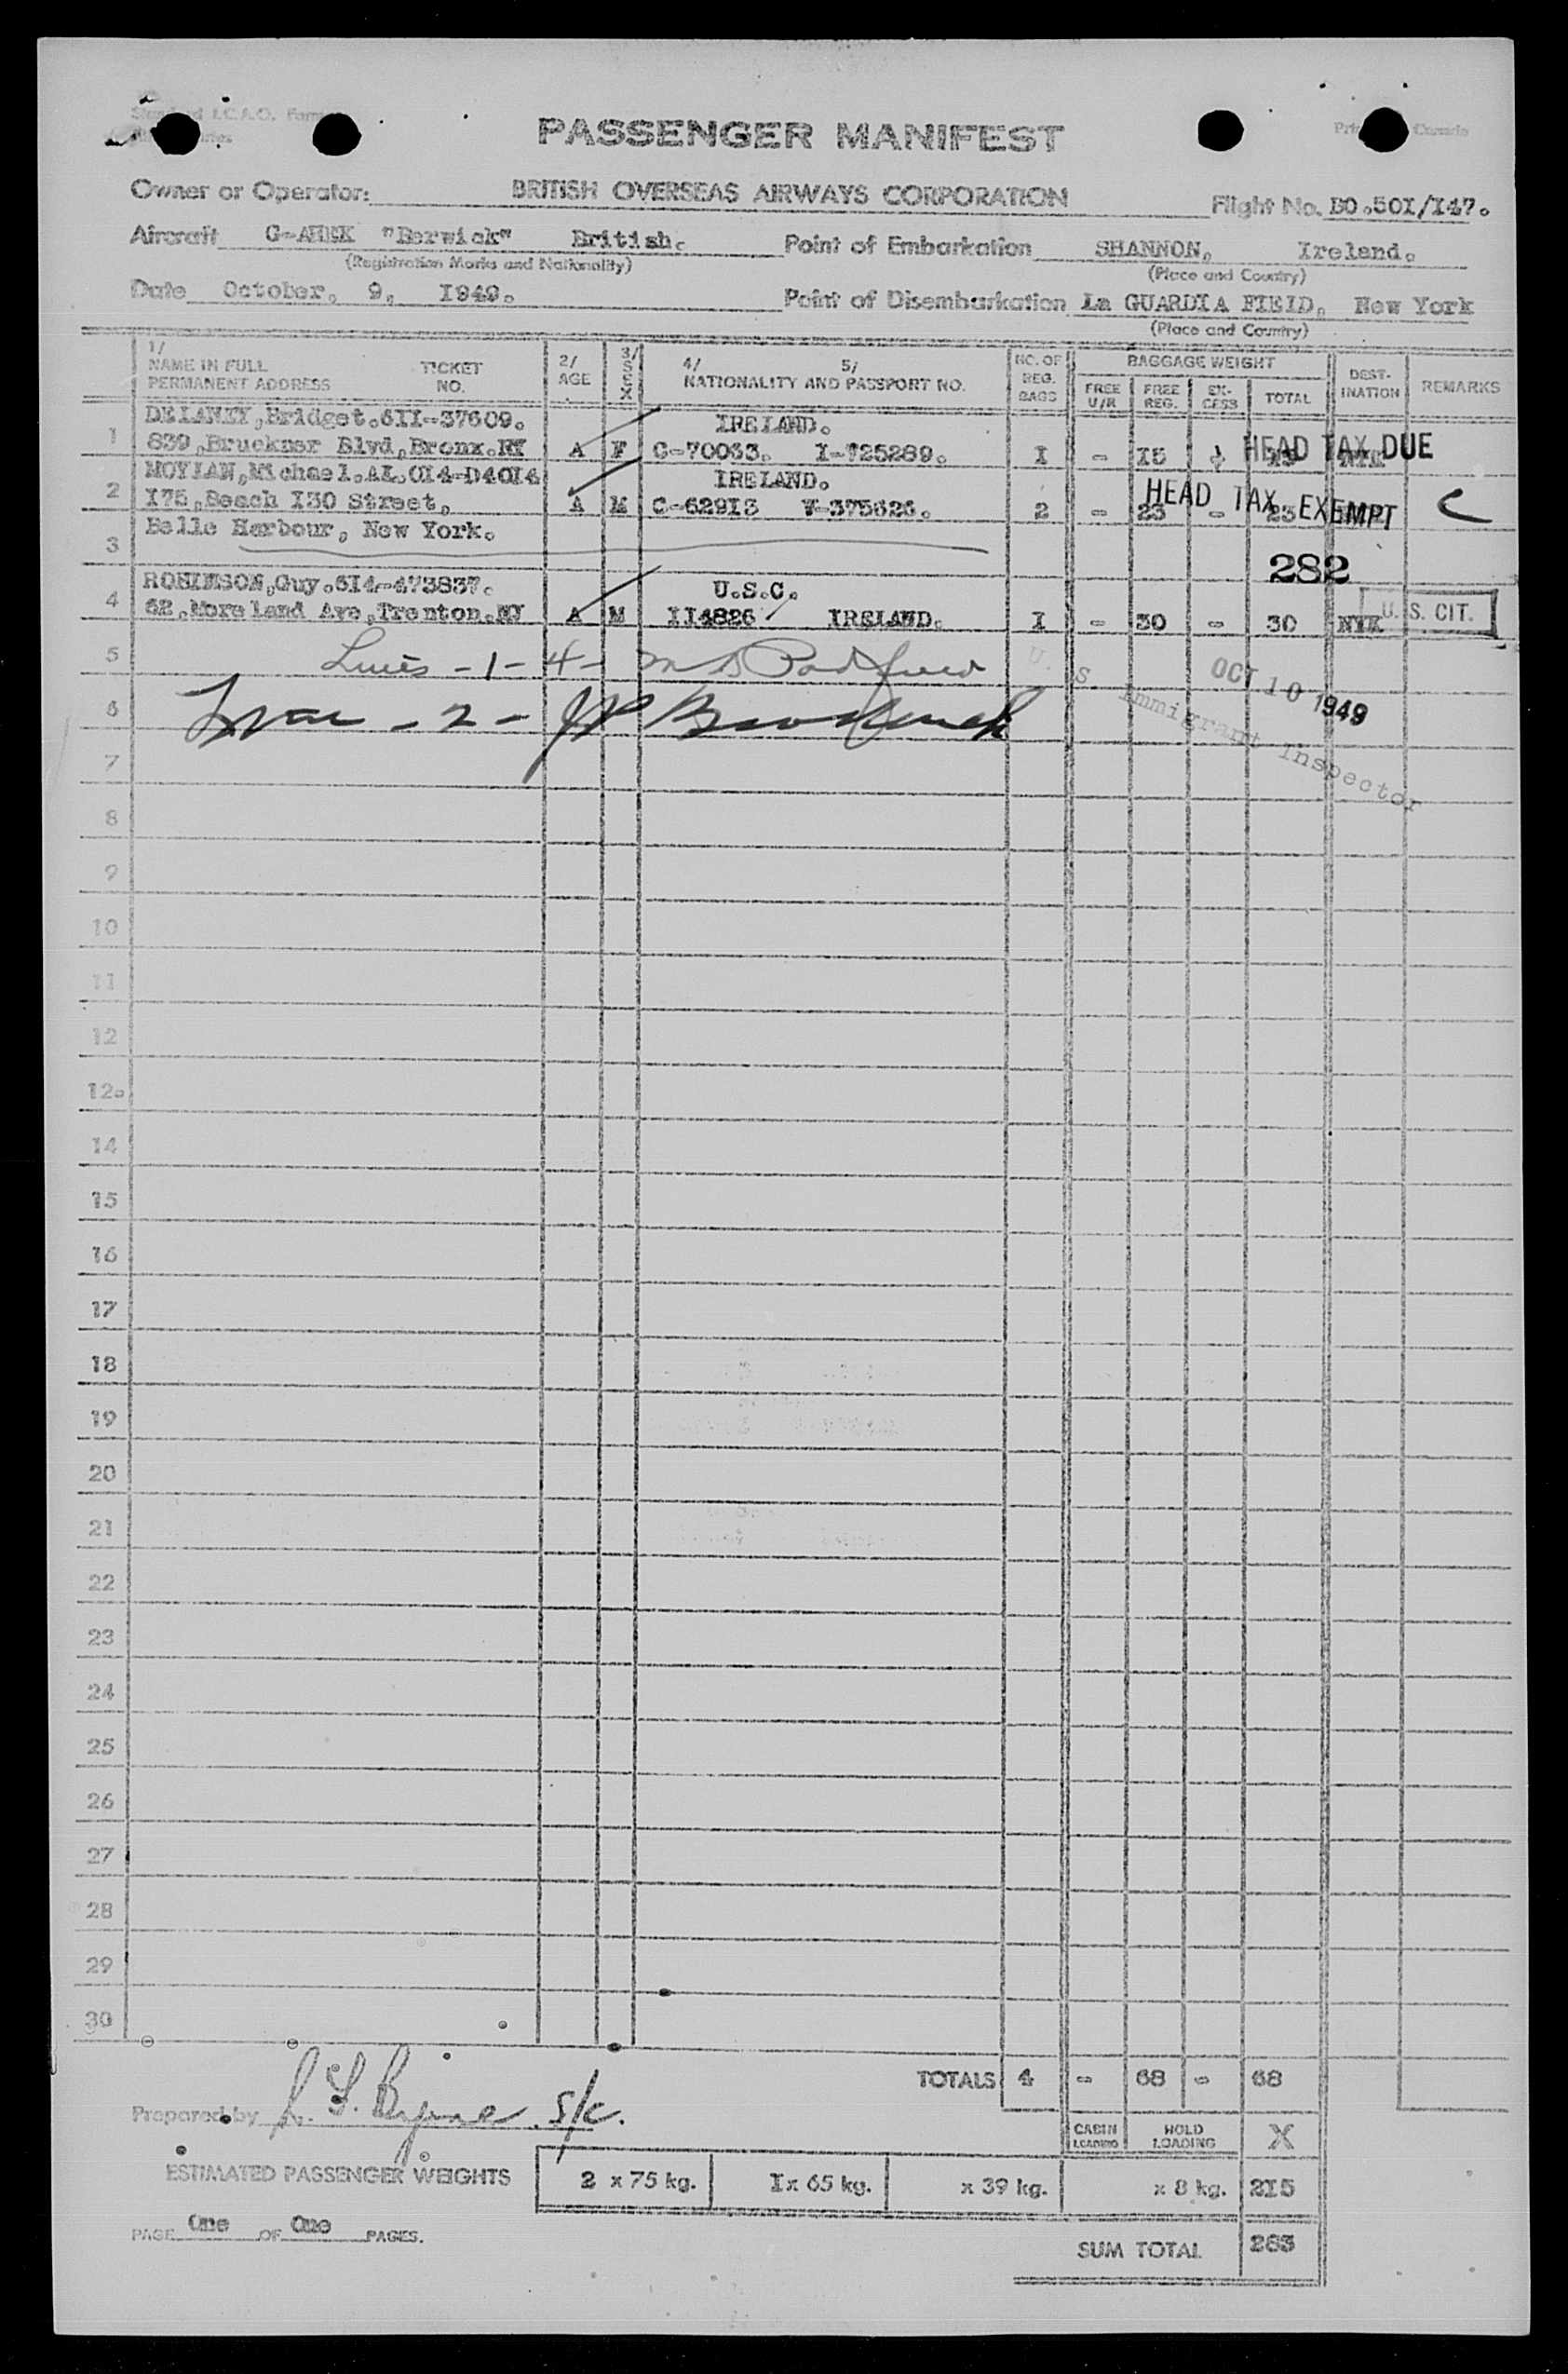 Standard I.C.A.O. Form
PASSENGER MANIFEST
Owner or Operator: BRITISH OVERSEAS AIRWAYS CORPORATION Flight No. BO.50I/I47.
Aircraft G-AHEK "Berwick" British. Point of Embarkation SHANNON, Ireland.
(Registration Marks and Nationality) (Place and Country)
Date October, 9, I949. Point of Disembarkation La GUARDIA FIELD, New York
(Place and Country)
1/ NAME IN FULL PERMANENT ADDRESS TICKET NO. 2/ AGE 3/ SEX 4/ 5/ NATIONALITY AND PASSPORT NO. NO. OF REG. BAGS BAGGAGE WEIGHT FREE U/R FREE REG. EX-CESS TOTAL DEST-INATION REMARKS
DELANEY,Bridget.6II-37609. IRELAND.
1 839,Bruckner Blvd,Bronx.NY A F C-70033. I-725289. I - I5 HEAD TAX DUE
MOYLAN,Michael.AL.OI4-D40I4 IRELAND.
2 I75,Beach I30 Street, A M C-629I3 V-375626. 2 - 23 - 23 HEAD TAX EXEMPT
Belle Harbour, New York.
3
282
ROBINSON,Guy.6I4-473837. U.S.C.
4 62,Moreland Ave,Trenton.NJ A M II4826 IRELAND. I - 30 - 30 NYK U. S. CIT.
5 Lines - 1 - 4 -
U. S. Immigrant Inspector
OCT 10 1949
6 Line - 2 -
7
8
9
10
11
12
12a
14
15
16
17
18
19
20
21
22
23
24
25
26
27
28
29
30
TOTALS 4 - 68 - 68
Prepared by Byrne s/c.
CABIN LOADING HOLD LOADING X
ESTIMATED PASSENGER WEIGHTS 2 x 75 kg. I x 65 kg. x 39 kg. x 8 kg. 2I5
PAGE One OF One PAGES.
SUM TOTAL 283